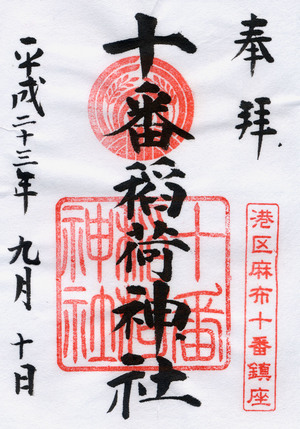 奉拝
港区麻布十番鎮座
十番稲荷神社
十番
稲荷
神社
平成二十三年 九月 十日